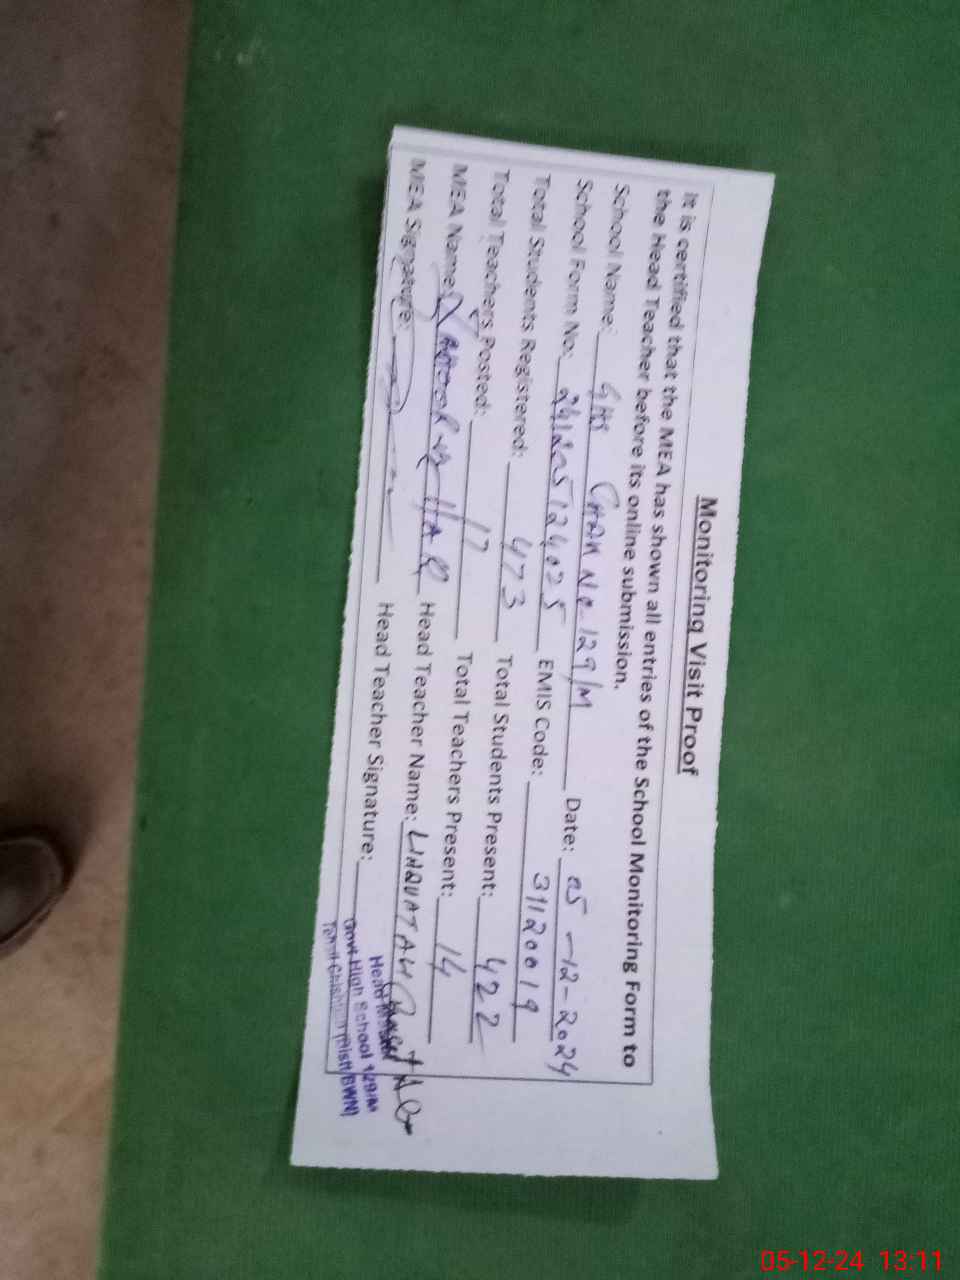 Monitoring Visit Proof
It is certified that the MEA has shown all entries of the School Monitoring Form to
the Head Teacher before its online submission.
School Name: GHS CHAK No-129/M Date: 05-12-2024
School Form No: 241205124025 EMIS Code: 31120019
Total Students Registered: 473 Total Students Present: 422
Total Teachers Posted: 17 Total Teachers Present: 14
MEA Name: Head Teacher Name: LIAQUAT ALI
MEA Signature: Head Teacher Signature:
Head Master
Govt High School 129/M
Tehsil Chishtian Distt (BWN)
05-12-24 13:11